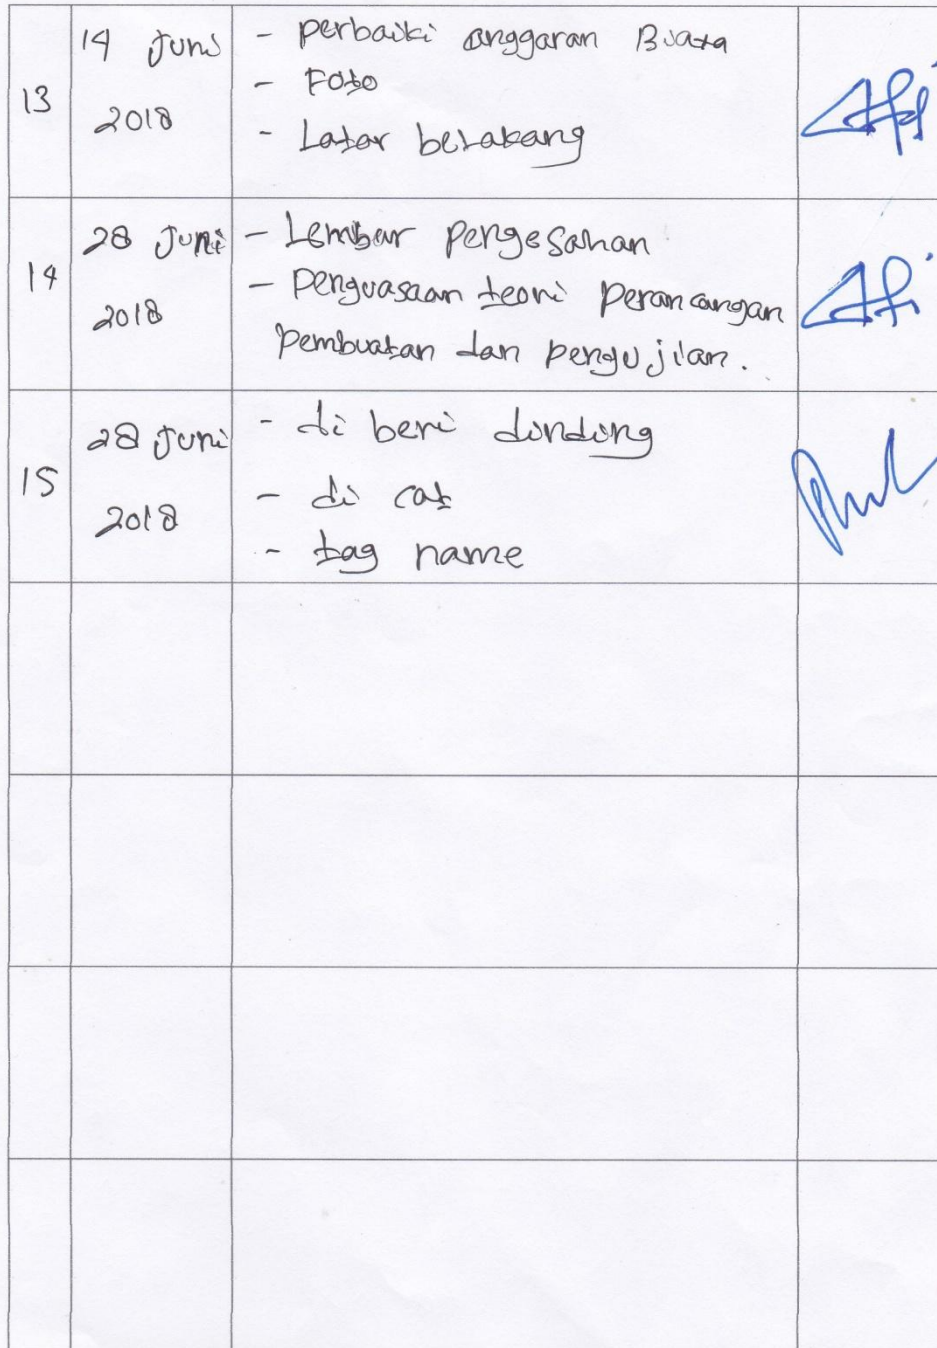 13
14 Juni
2018
- perbaiki anggaran Biaya
- Foto
- Latar belakang
14
28 Juni
2018
- Lembar pengesahan
- Penguasaan teori perancangan
pembuatan dan pengujian.
15
28 Juni
2018
- di beri dinding
- di cat
- tag name